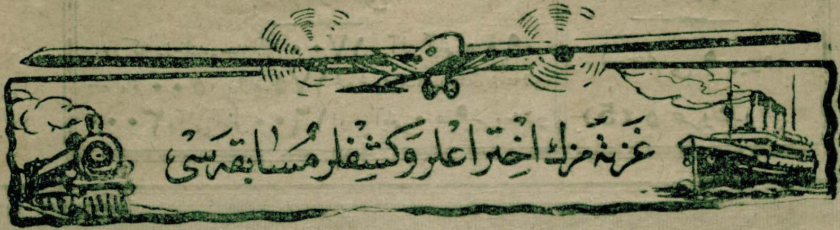 غَزَتَه مزك اخْتِراعلر وَكشِفلر مُسَابقه سَى